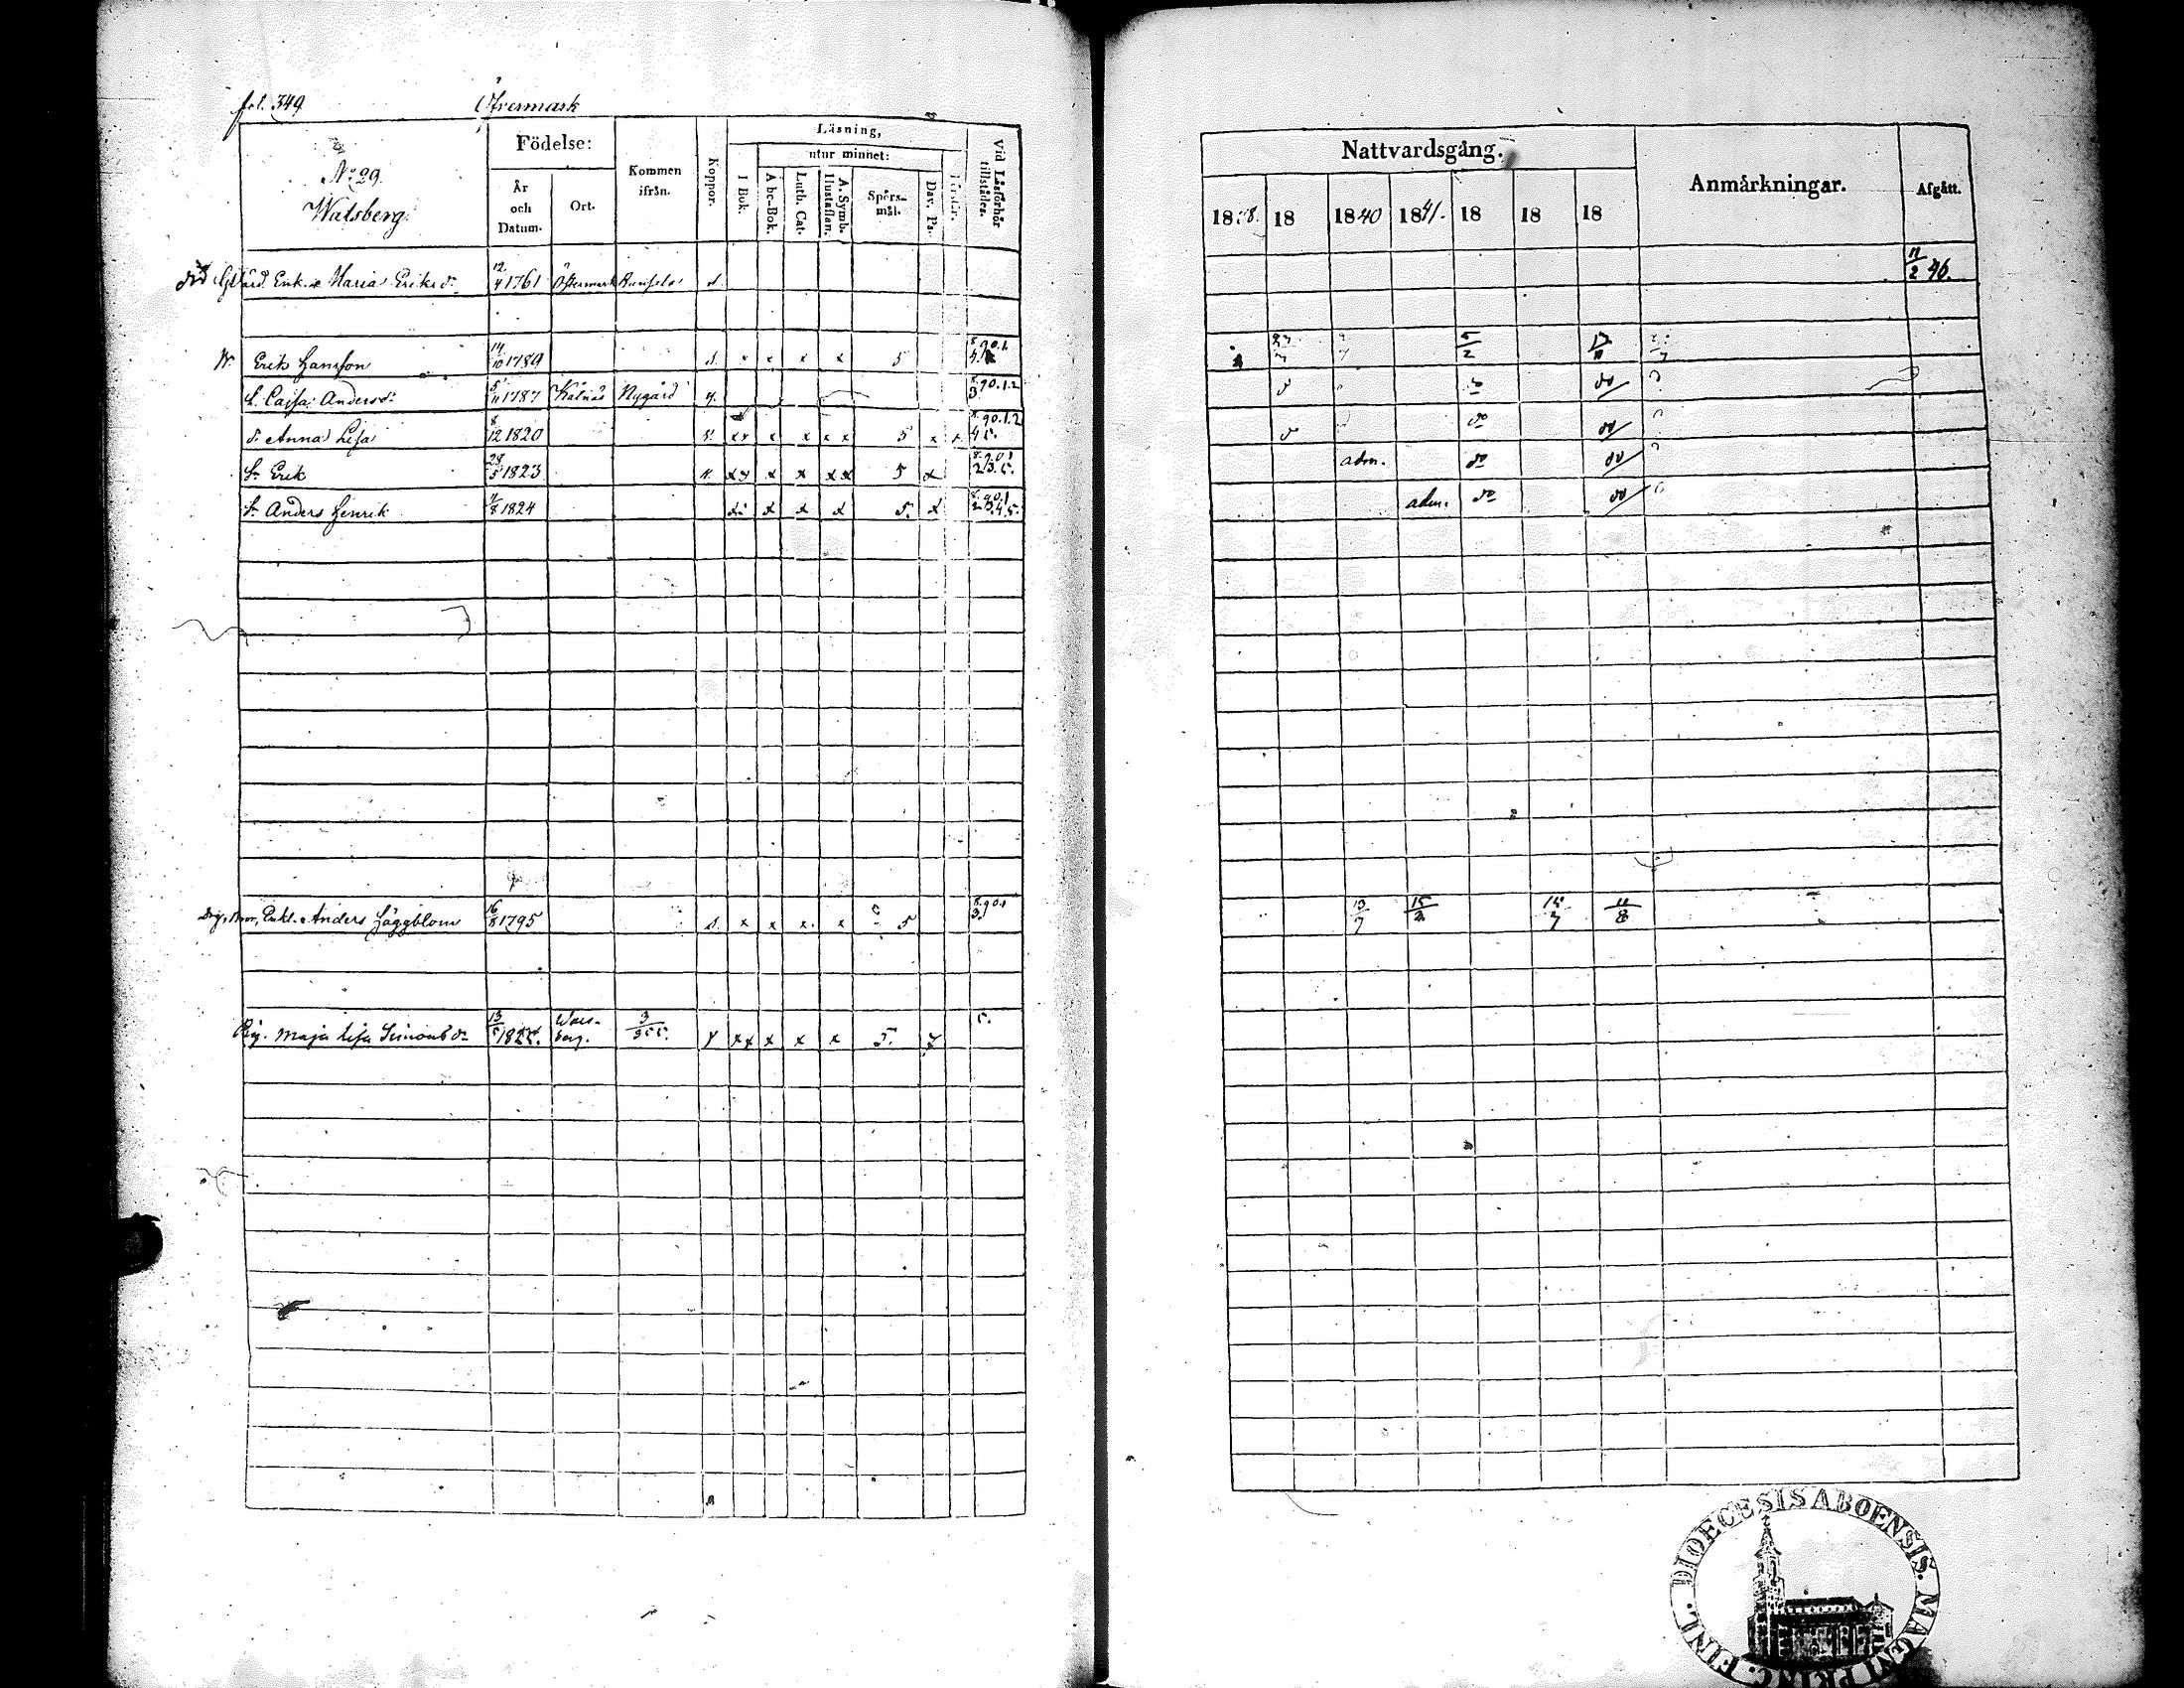 fol. 349. Öfvermark
No 29.
Watsberg.
Födelse:
År
och
Datum.
Ort.
Kommen
ifrån.
Koppor.
Läsning,
utur minnet:
I Bok.
A bc-Bok.
Luth. Cat.
A. Symb.
Hustaflan.
Spörs-
mål.
Dav. Ps.
Vid Läsförhör
tillstädes.
död Enk. Maria Eriksdr 12/4 1761 Östermark s.
Erik Hansson 14/10 1789 s. x x x x 5 8.90.1.
h. Cajsa Andersdr 5/11 1787 Kåtnäs Nygård 8.90.1.2
3
d. Anna Lisa 8/12 1820 xx x x x x 5 x 8.90.1.2
4 5.
Sn Erik 28/5 1823 xx x x xx 5 x 8.90.1
2.3.5.
Sn Anders Henrik 1824 x x x 5. x 8.90.1
2.3.4.5.
Enkl. Anders Häggblom 16/8 1795 s. x x x x 5 8.90.1
3.
Pig. Maja Lisa Simonsdr 13/5 182 Wats-
berg. 3/355. y xx x x x 5. 5.
Nattvardsgång.
Anmärkningar.
Afgått.
18 38. 18 18 40 18 41. 18 18 18
11/2 46.
5/2 17/11
do do
adm. do do
adm. do do
13/7 15/2 15/7 11/8
DIOECESIS ABOENSIS. MAGNI PRINC. FINL.